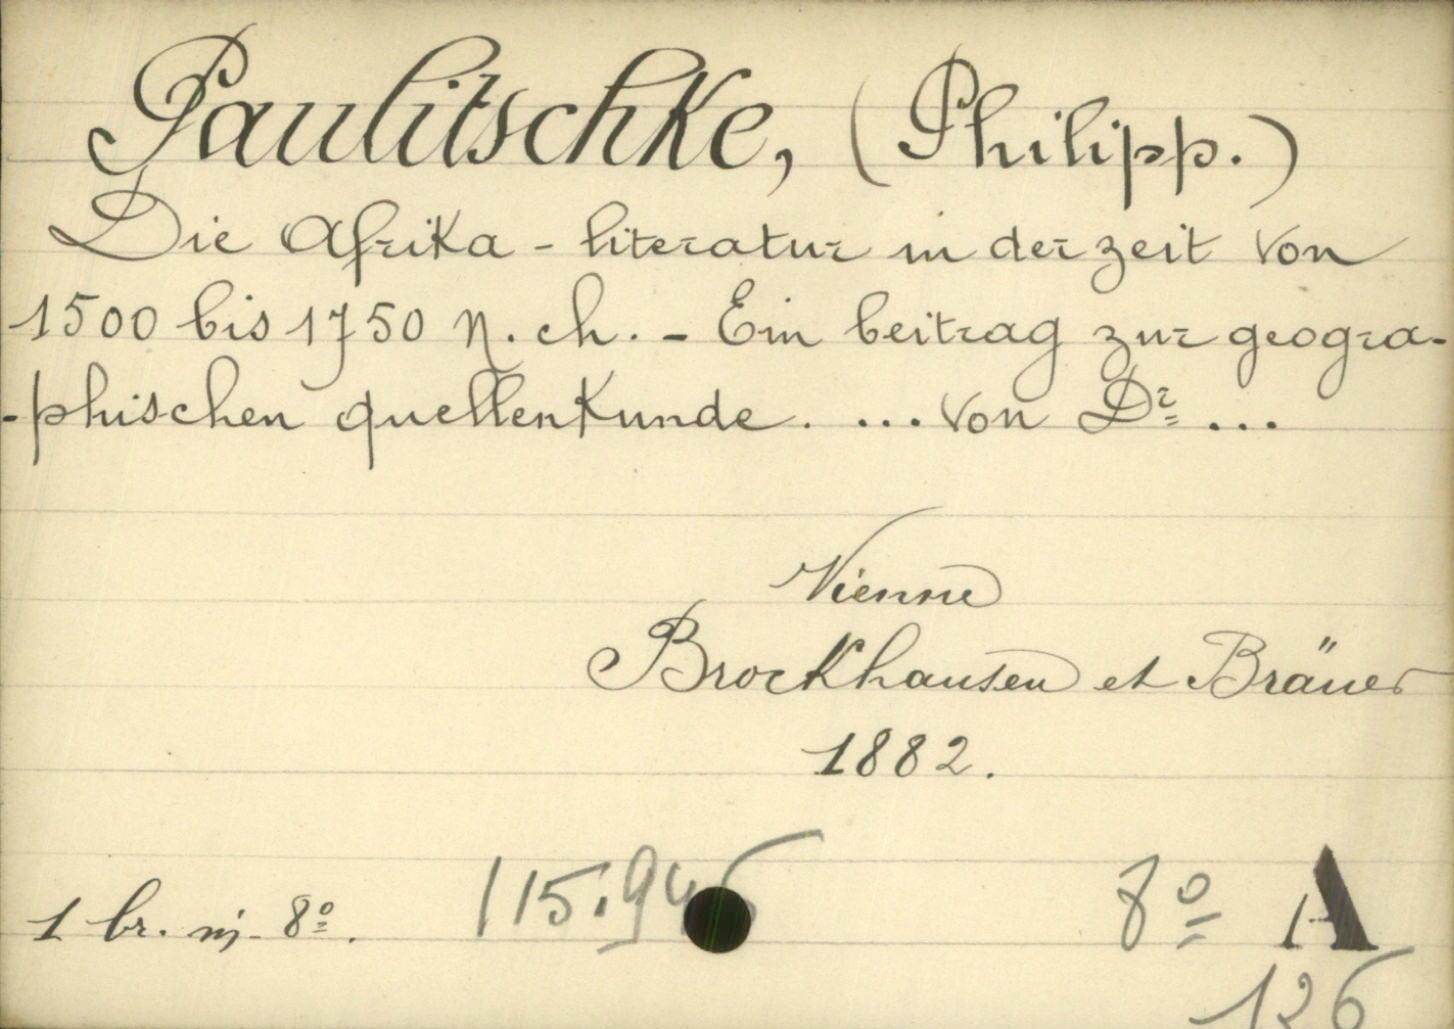 Paulitschke, (Philipp.)
Die Afrika - literatur in der zeit von
1500 bis 1750 N. ch. - Ein beitrag zur geogra-
-phischen quellenkunde. ... von Dr ...
Vienne
Brockhausen et Bräuer
1882.
1 br. in-8º.
115.94
8º A
126